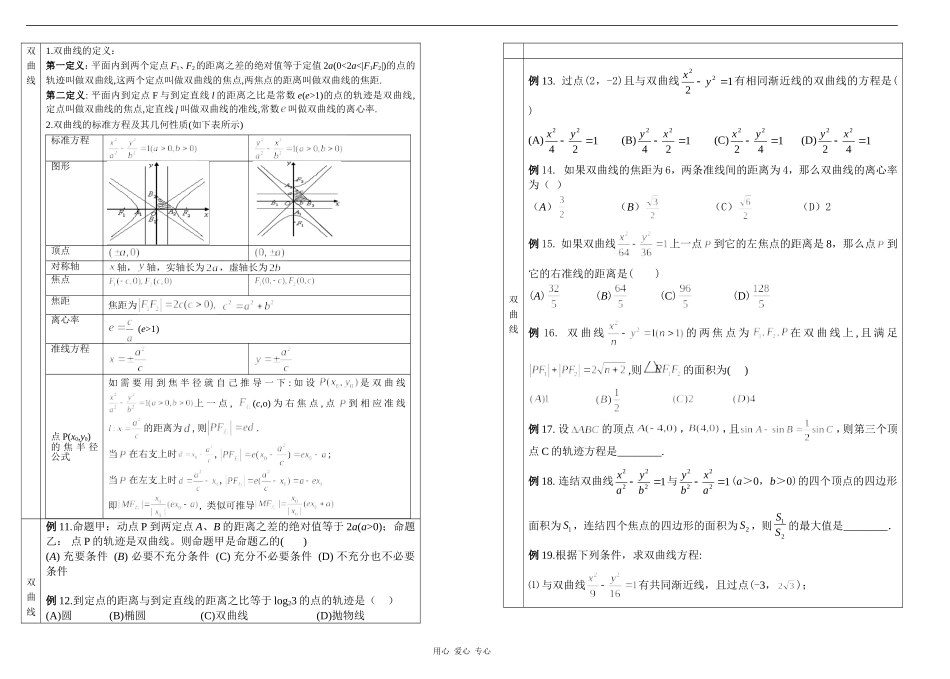 双曲线
1.双曲线的定义:
第一定义: 平面内到两个定点 F₁、F₂的距离之差的绝对值等于定值 2a(0<2a<|F₁F₂|)的点的
轨迹叫做双曲线,这两个定点叫做双曲线的焦点,两焦点的距离叫做双曲线的焦距.
第二定义: 平面内到定点 F 与到定直线 l 的距离之比是常数 e(e>1)的点的轨迹是双曲线,
定点叫做双曲线的焦点,定直线 l 叫做双曲线的准线,常数 e 叫做双曲线的离心率.
2.双曲线的标准方程及其几何性质(如下表所示)
标准方程 x²/a² - y²/b² = 1(a>0,b>0) y²/a² - x²/b² = 1(a>0,b>0)
图形
顶点 (±a,0) (0,±a)
对称轴 x 轴, y 轴, 实轴长为 2a , 虚轴长为 2b
焦点 F₁(-c,0),F₂(c,0) F₁(0,-c),F₂(0,c)
焦距 焦距为 |F₁F₂| = 2c(c>0), c² = a² + b²
离心率 e = c/a (e>1)
准线方程 x = ±a²/c y = ±a²/c
点 P(x₀,y₀)
的 焦 半 径
公式
如需要用到焦半径就自己推导一下:如设 P(x₀,y₀) 是双曲线
x²/a² - y²/b² = 1(a>0,b>0) 上一点, F₂ (c,o) 为右焦点,点 P 到相应准线
l : x = a²/c 的距离为 d , 则 |PF₂| = ed .
当 P 在右支上时 d = x₀ - a²/c , |PF₂| = e(x₀ - a²/c) = ex₀ - a ;
当 P 在左支上时 d = a²/c - x₀ , |PF₂| = e(a²/c - x₀) = a - ex₀
双曲线
例 11.命题甲：动点 P 到两定点 A、B 的距离之差的绝对值等于 2a(a>0)；命题
乙： 点 P 的轨迹是双曲线。则命题甲是命题乙的( )
(A) 充要条件 (B) 必要不充分条件 (C) 充分不必要条件 (D) 不充分也不必要
条件
例 12.到定点的距离与到定直线的距离之比等于 log₂3 的点的轨迹是（ ）
(A)圆 (B)椭圆 (C)双曲线 (D)抛物线
双曲线
例 13. 过点(2, -2)且与双曲线 x²/2 - y² = 1 有相同渐近线的双曲线的方程是(
)
(A) x²/4 - y²/2 = 1 (B) y²/4 - x²/2 = 1 (C) x²/2 - y²/4 = 1 (D) y²/2 - x²/4 = 1
例 14. 如果双曲线的焦距为 6，两条准线间的距离为 4，那么双曲线的离心率
为（ ）
（A）3/2 （B）√3/2 （C）√6/2 （D）2
例 15. 如果双曲线 x²/64 - y²/36 = 1 上一点 P 到它的左焦点的距离是 8，那么点 P 到
它的右准线的距离是( )
(A) 32/5 (B) 64/5 (C) 96/5 (D) 128/5
例 16. 双曲线 x²/n - y² = 1(n>1) 的两焦点为 F₁, F₂, P 在双曲线上,且满足
|PF₁| + |PF₂| = 2√(n+2) ,则 △PF₁F₂ 的面积为( )
(A)1 (B) 1/2 (C)2 (D)4
例 17. 设 △ABC 的顶点 A(-4,0) , B(4,0) , 且 sin A - sin B = 1/2 sin C , 则第三个顶
点 C 的轨迹方程是________.
例 18. 连结双曲线 x²/a² - y²/b² = 1 与 y²/b² - x²/a² = 1 (a＞0，b＞0)的四个顶点的四边形
面积为 S₁，连结四个焦点的四边形的面积为 S₂，则 S₁/S₂ 的最大值是________．
例 19.根据下列条件，求双曲线方程:
⑴与双曲线 x²/9 - y²/16 = 1 有共同渐近线，且过点(-3, 2√3)；
用心 爱心 专心